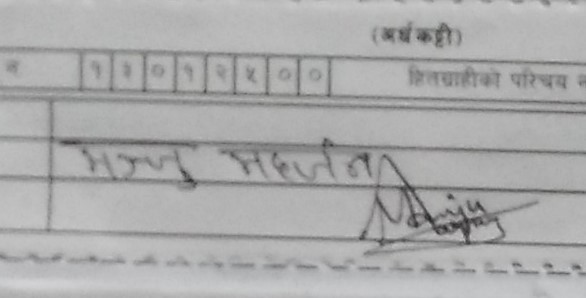 (अर्धकट्टी)
१ ३ ० १ २ ५ ० ० हितग्राहीको परिचय
मञ्जु महर्जन
Manju